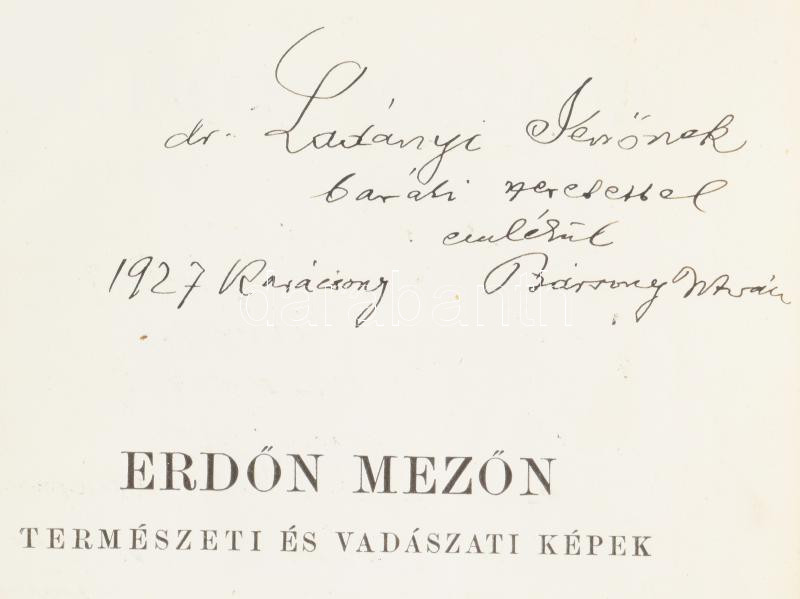 dr. Ladányi Jenőnek
baráti szeretettel
emlékül
1927 Karácsony Bársony István
darabanth
ERDŐN MEZŐN
TERMÉSZETI ÉS VADÁSZATI KÉPEK